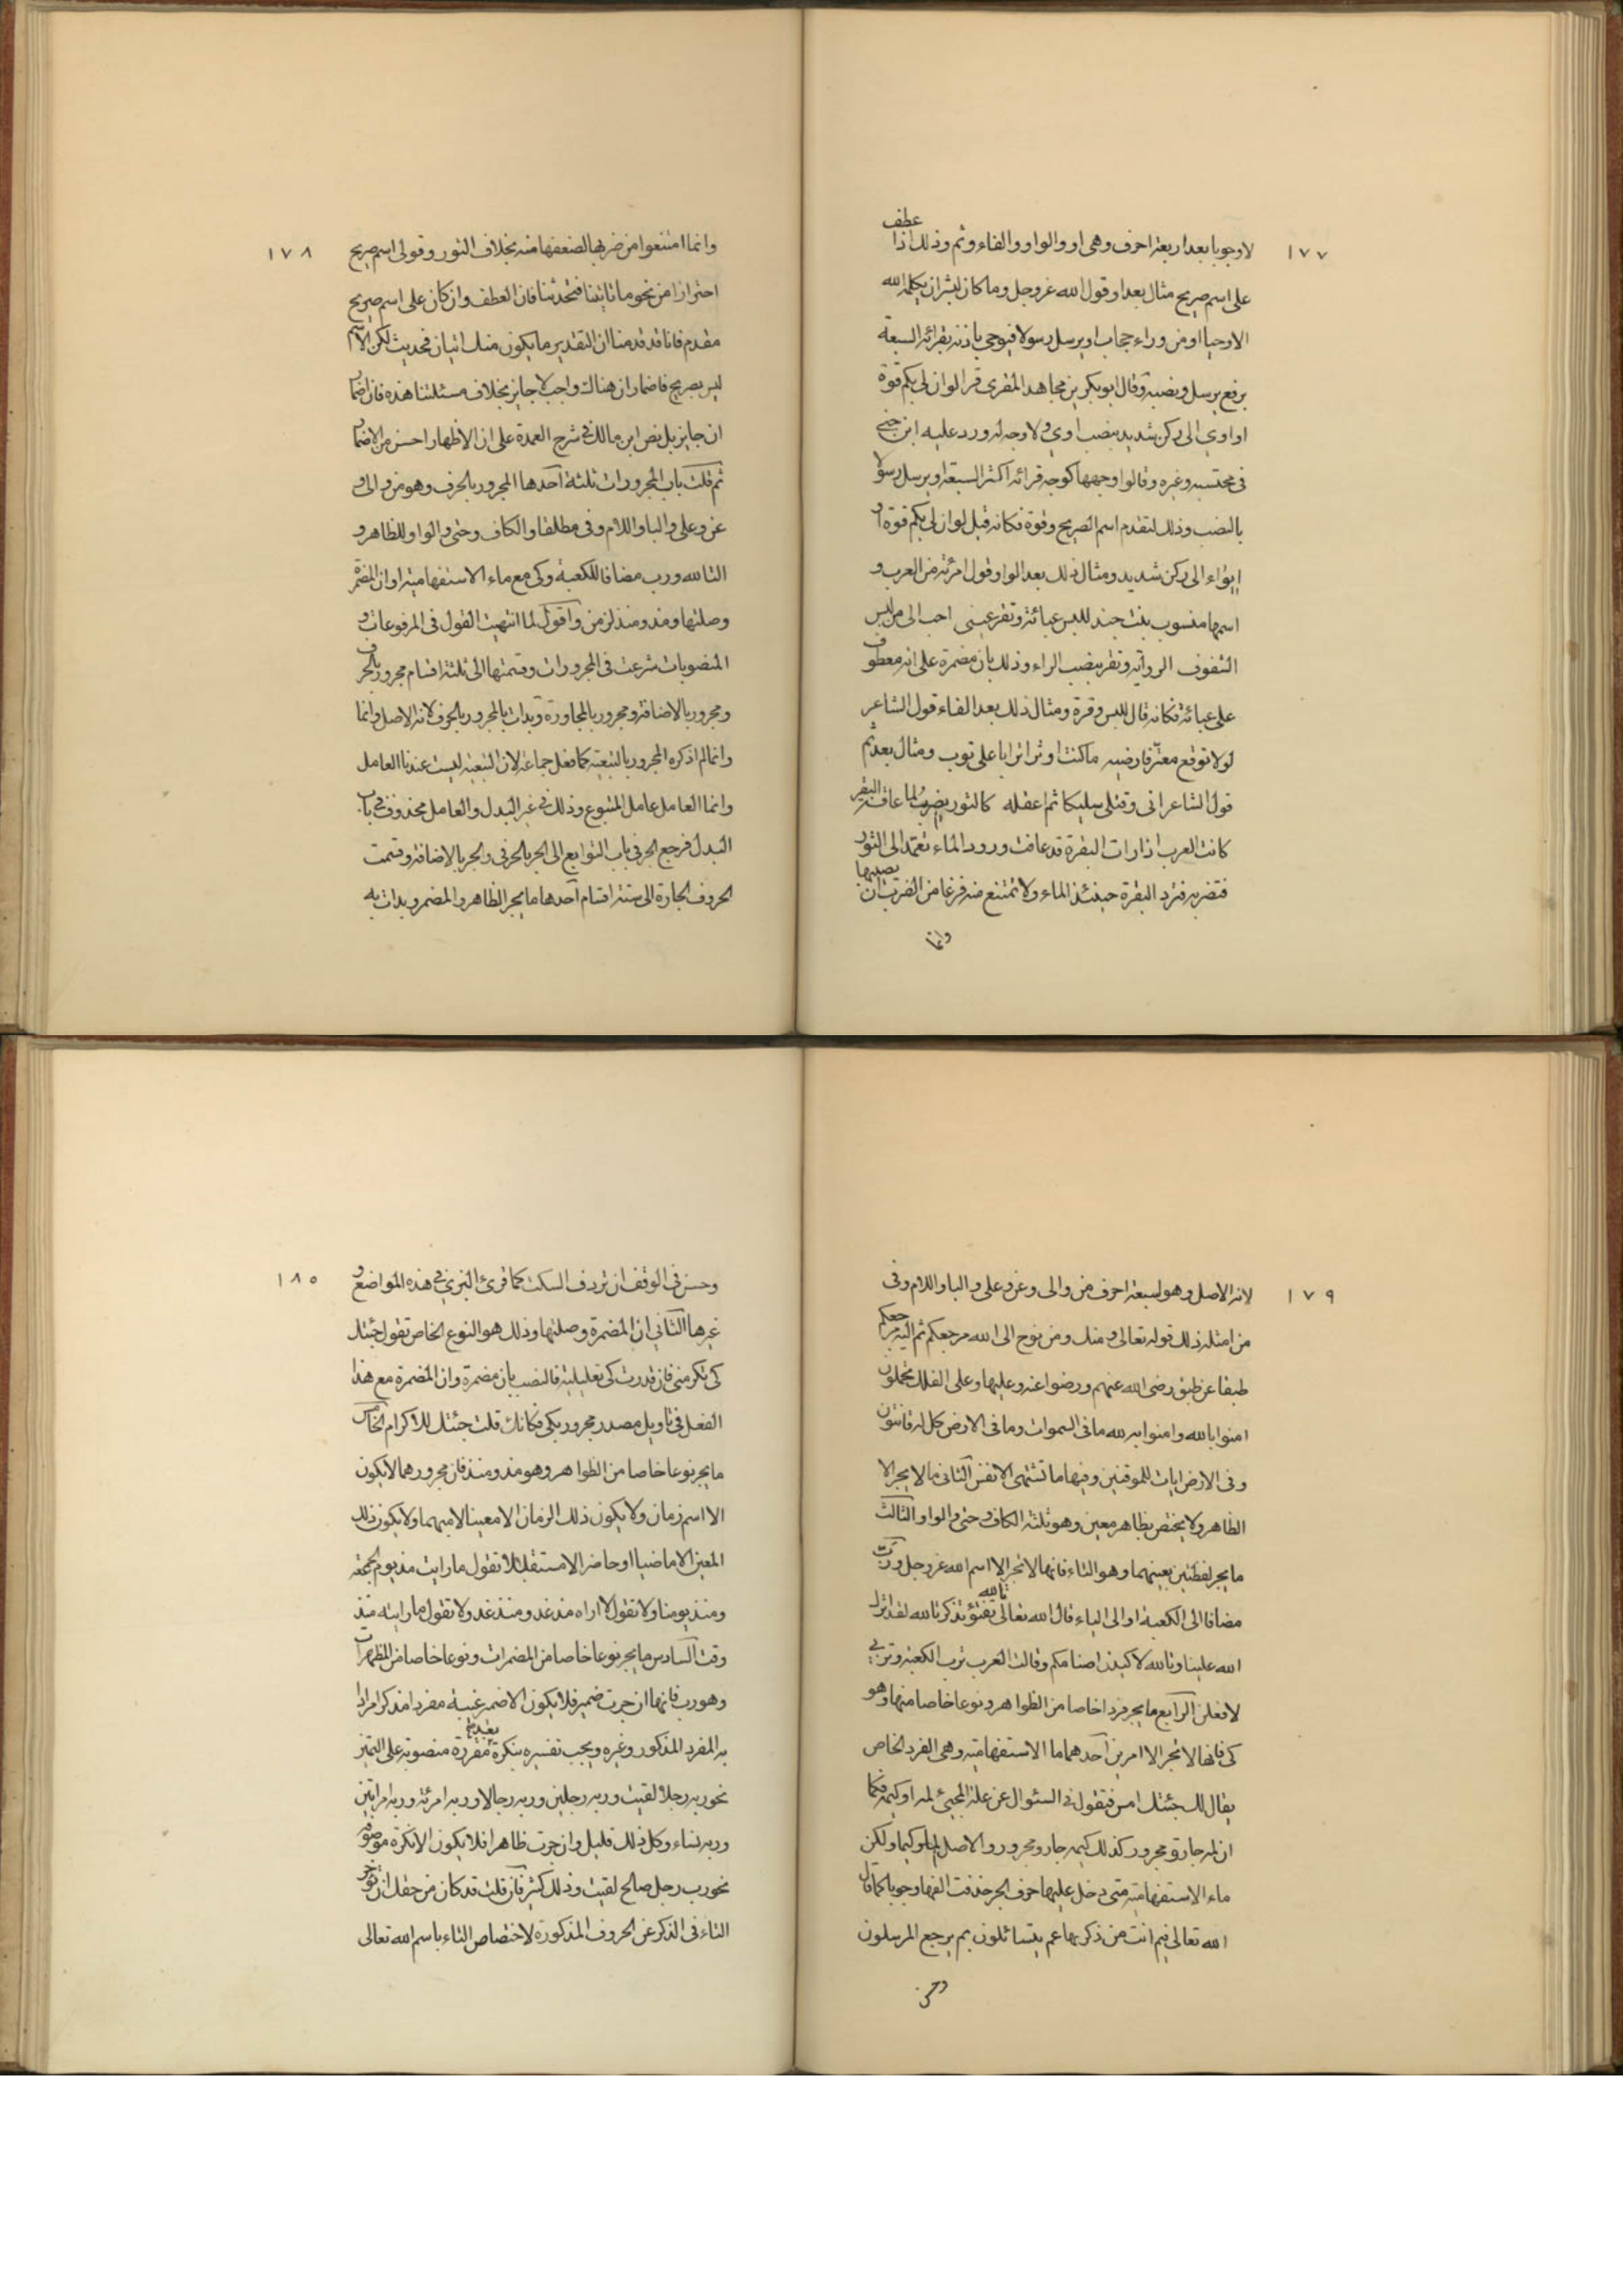 ١٧٧
عطف
لا وجوبا بعد اربعة احرف وهى او والواو والفاء وثم وذلك اذا
على اسم صريح مثال بعد او قول الله عز وجل وما كان لبشر ان يكلمه الله
الا وحيا او من وراء حجاب او يرسل رسولا فيوحى باذنه بقرائة السبعة
برفع يرسل ونصبه وقال ابو بكر بن مجاهد المقرى قرا لو ان لى بكم قوة
او اوي الى ركن شديد بنصب اوي ولا وجه له ورد عليه ابن جنى
فى محتسبه وغيره وقالوا وجهها كوجه قرائة اكثر السبعة او يرسل رسولا
بالنصب وذلك لتقدم اسم الصريح وقوة فكانه قيل لو ان لى بكم قوة او
ايواء الى ركن شديد ومثال ذلك بعد الواو قول امرئة من العرب و
اسمها منسوب بنت جند للبس عبائة وتقر عينى احب الى من لبس
الشفوف الرواية وتقر بنصب الراء وذلك بان مضمرة على انه معطوف
على عبائة فكانه قال للبس وقرة ومثال ذلك بعد الفاء قول الشاعر
لولا توقع معتر فارضيه ما كنت اوثر اترابا على توب ومثال بعد ثم
قول الشاعر انى وقتلى سليكا ثم اعقله كالثور يضرب لما عافت البقر
كانت العرب اذا رات البقرة قد عافت ورود الماء تعمد الى الثور
يصيبها
فتضربه فترد البقرة حينئذ الماء ولا تمتنع منه فرغا من الضرب ان
وانما
١٧٨
وانما امتنعوا من ضربها لضعفها منه بخلاف الثور وقولى اسم صريح
احترازا من نحو ما تاتينا فتحدثنا فان العطف وان كان على اسم صريح
مقدم فانا قد قدمنا ان التقدير ما يكون منك اتيان فحديث لكن الاسم
ليس بصريح فاضمار ان هناك واجب لا جايز بخلاف مسئلتنا هذه فان اضمار
ان جايز بل نص ابن مالك فى شرح العمدة على ان الاظهار احسن من الاضمار
ثم قلت باب المجرورات ثلثة احدها المجرور بالحرف وهو من و الى و
عن وعلى والبا واللام وفى مطلقا والكاف وحتى والواو للظاهر و
التا لله ورب مضافا للكعبة وكى مع ماء الاستفهامية او ان المضمرة
وصلتها ومذ ومنذ لزمن واقول لما انتهيت القول فى المرفوعات و
المنصوبات شرعت فى المجرورات وقسمتها الى ثلثة اقسام مجرور بالحرف
ومجرور بالاضافة ومجرور بالمجاورة وبدات بالمجرور بالحرف لانه الاصل وانما
وانما لم اذكره المجرور بالتبعية كما فعل جماعة لان التبعية ليست عندنا العامل
وانما العامل عامل المتبوع وذلك فى غير البدل والعامل محذوف فى باب
البدل فرجع الجر فى باب التوابع الى الجر بالحرف والجر بالاضافة وقسمت
الحروف الجارة الى ستة اقسام احدها ما يجر الظاهر والمضمر وبدات به
١٧٩
لانه الاصل وهو لسبعة احرف من والى وعن وعلى والبا واللام وفى
من امثلة ذلك قوله تعالى ومنك ومن نوح الى الله مرجعكم ثم اليه مرجعكم
طبقا عن طبق رضى الله عنهم ورضوا عنه وعليها وعلى الفلك تحملون
امنوا بالله وامنوا به لله ما فى السموات وما فى الارض كل له قانتون
وفى الارض ايات للموقنين وفيها ما تشتهى الانفس الثانى ما لا يجر الا
الظاهر ولا يختص بظاهر معين وهو ثلثة الكاف وحتى والواو الثالث
ما يجر لفظتين بعينهما وهو التاء فانها لا تجر الا اسم الله عز وجل ورب
مضافا الى الكعبة او الى الياء قال الله تعالى تالله تفتؤ تذكر تالله لقد اثرك
الله علينا وتالله لاكيدن اصنامكم وقالت العرب ترب الكعبة وتربى
لافعلن الرابع ما يجر فردا خاصا من الظواهر ونوعا خاصا منها وهو
كى فانها لا تجر الا امرين احدهما ما الاستفهامية وهى الفرد الخاص
يقال لك جئتك امس فتقول فى السئوال عن علة المجيئ لمه او كيمه فكما
ان لمه جار و مجرور كذلك كيمه جار ومجرور والاصل لما وكيما ولكن
ماء الاستفهامية متى دخل عليها حرف الجر حذفت الفها وجوبا كما قال
الله تعالى فيم انت من ذكريها عم يتسائلون بم يرجع المرسلون
وحسن
١٨٠
وحسن فى الوقف ان تردف السكت كما قرئ البزى فى هذه المواضع و
غيرها الثانى ان المضمرة وصلتها وذلك هو النوع الخاص تقول جئتك
كى تكرمنى فان قدرت كى تعليلية فالنصب بان مضمرة وان المضمرة مع هذا
الفعل فى تاويل مصدر مجرور بكى فكانك قلت جئتك للاكرام الخامس
ما يجر نوعا خاصا من الظواهر وهو مذ ومنذ فان مجرورهما لا يكون
الا اسم زمان ولا يكون ذلك الزمان الا معينا لا مبهما ولا يكون ذلك
المعين الا ماضيا او حاضرا لا مستقبلا تقول ما رايت مذ يوم الجمعة
ومنذ يومنا ولا تقول لا اراه مذ غد ومنذ غد ولا تقول ما رايته منذ
وقت السادس ما يجر نوعا خاصا من المضمرات ونوعا خاصا من المظهرات
وهو رب فانها ان جرت ضمير فلا يكون الا ضمير غيبة مفردا مذكرا مرادا
به المفرد المذكور وغيره ويجب تفسيره بنكرة بعده مفردة منصوبة على التميز
نحو ربه رجلا لقيت وربه رجلين وربه رجالا وربه امرئة وربه امراتين
وربه نساء وكل ذلك قليل وان جرت ظاهرا فلا يكون الا نكرة موصوفة
نحو رب رجل صالح لقيت وذلك كثير فان قلت قد كان من حقك ان تؤخر
التاء فى الذكر عن الحروف المذكورة لاختصاص التاء باسم الله تعالى